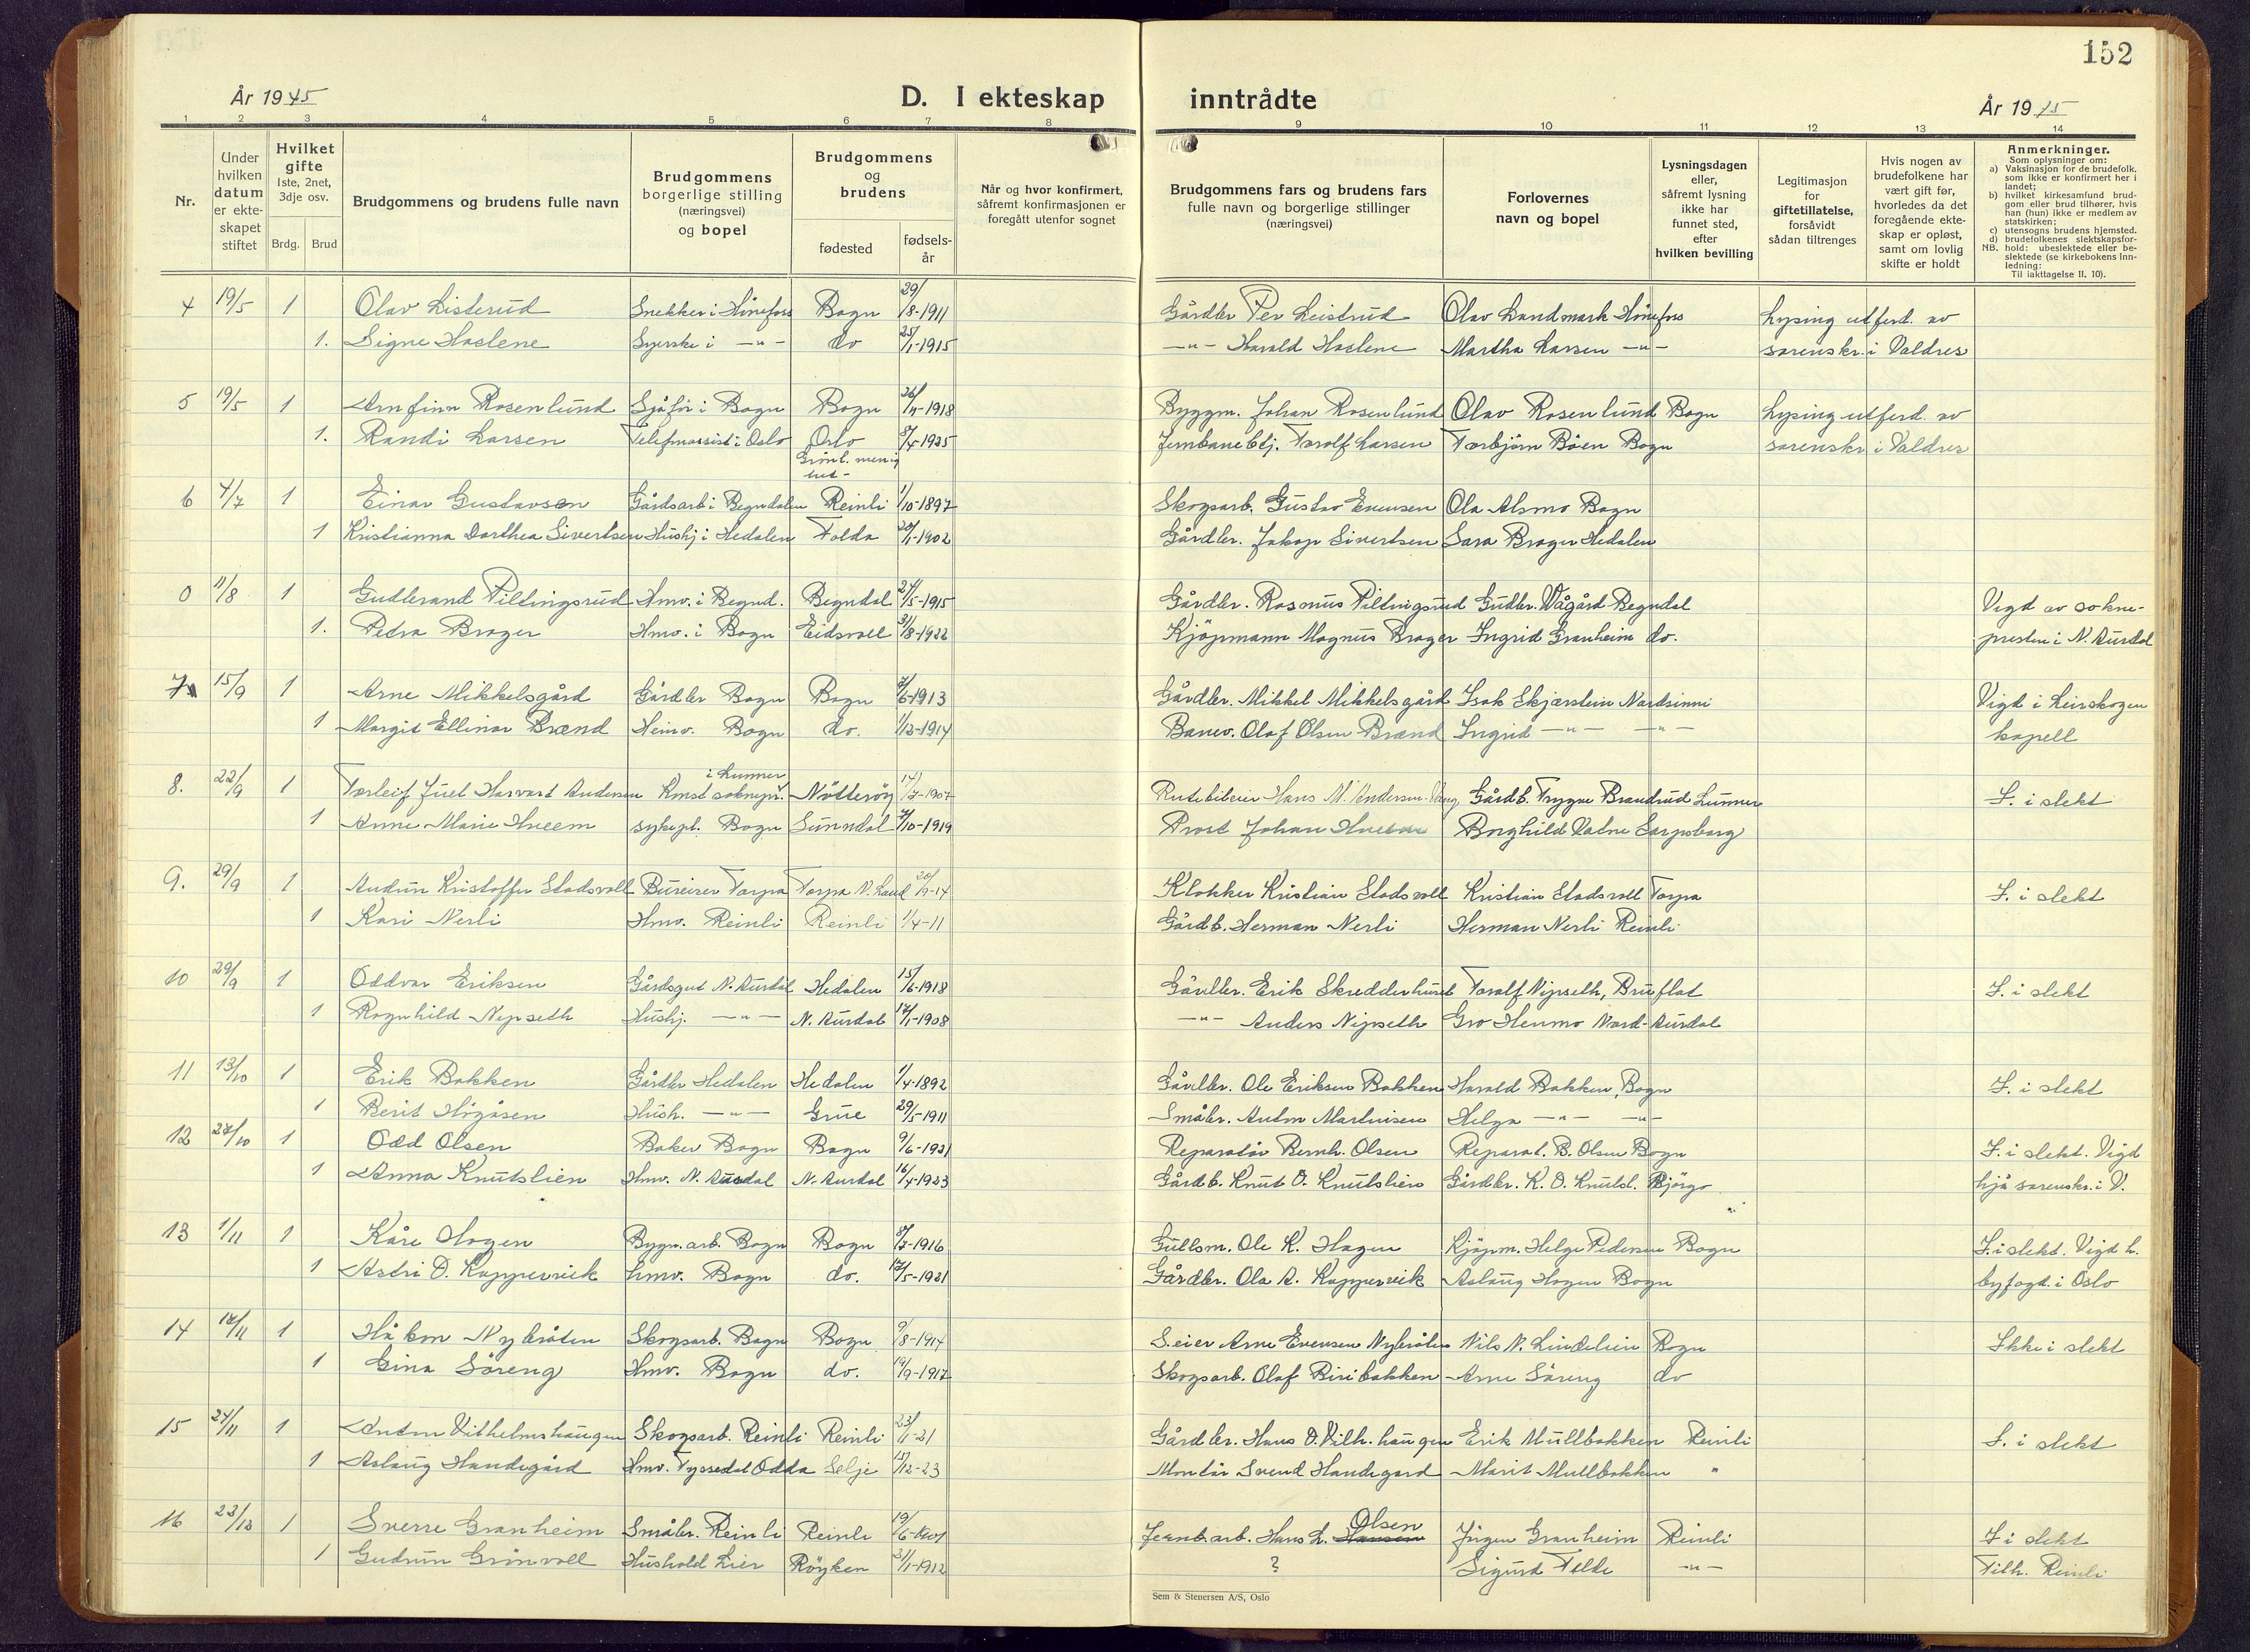 152
År 1945
D. I ekteskap inntrådte
År 1945
1 2 3 4 5 6 7 8 9 10 11 12 13 14
Nr.
Under hvilken datum er ekteskapet stiftet
Hvilket gifte
1ste, 2net, 3dje osv.
Brdg. Brud
Brudgommens og brudens fulle navn
Brudgommens borgerlige stilling (næringsvei) og bopel
Brudgommens og brudens
fødested
fødselsår
Når og hvor konfirmert, såfremt konfirmasjonen er foregått utenfor sognet
Brudgommens fars og brudens fars fulle navn og borgerlige stillinger (næringsvei)
Forlovernes navn og bopel
Lysningsdagen eller, såfremt lysning ikke har funnet sted, efter hvilken bevilling
Legitimasjon for giftetillatelse, forsåvidt sådan tiltrenges
Hvis nogen av brudefolkene har vært gift før, hvorledes da det foregående ekteskap er opløst, samt om lovlig skifte er holdt
Anmerkninger.
Som oplysninger om:
a) Vaksinasjon for de brudefolk. som ikke er konfirmert her i landet;
b) hvilket kirkesamfund brudgom eller brud tilhører, hvis han (hun) ikke er medlem av statskirken;
c) utensogns brudens hjemsted.
d) brudefolkenes slektskapsforhold: ubeslektede eller beslektede (se kirkebokens Innledning:
NB.
Til iakttagelse II. 10).
4 19/5 1 Olav Listerud Snekker i Hönefoss Bagn 29/8-1911 Gårdbr Per Leistrud Olav Landmark Hönefoss Lysing utferd. av
1. Signe Haslene Syerske i -"- do 25/1-1915 -"- Harald Haslene Martha Larsen -"- sorenskr. i Valdres
5 19/5 1 Arnfinn Rosenlund Sjåför i Bagn Bagn 26/4-1918 Byggm. Johan Rosenlund Olav Rosenlund Bagn Lysing utferd. av
1. Randi Larsen Telefonassist i Oslo Oslo 8/5-1925 Jernbanebtj. Torolf Larsen Torbjörn Böen Bagn sorenskr i Valdres
Grönl. menighet
6 4/7 1 Einar Gustavson Gårdsarb i Begndalen Reinli 1/10-1897 Skogsarb. Gustav Evensen Ola Alsmo Bagn
1 Kristianna Dorthea Sivertsen Hushj i Hedalen Folda 20/1-1902 Gårdbr. Jakop Sivertsen Sara Brager Hedalen
0 11/8 1 Gudbrand Piltingsrud Hmv. i Begnd. Begndal 24/5-1915 Gårdbr. Rasmus Piltingsrud Gudbr. Vågård Begndal Vigd av sokne-
1. Petra Brager Hmv. i Bagn Eidsvoll 3/8-1922 Kjöpmann Magnus Brager Ingrid Granheim do. presten i N. Aurdal
7 15/9 1 Arne Mikkelsgård Gårdbr Bagn Bagn /6-1913 Gårdbr. Mikkel Mikkelsgård Isak Skjærstein Nordsinni Vigd i Leirskogen
1 Margit Ellinor Brænd Heimv. Bagn do. 1/12-1914 Banev. Olaf Olsen Brænd Ingrid -"- -"- kapell
i Lunner
8. 22/9 1 Torleif Juel Harvard Andersen Konst sokneprt. Nötteröy 14/7-1907 Rutebileier Hans M. Andersen Gårdb. Trygve Brandrud Lunner I. i slekt
1 Anne Marie Hneem sykepl. Bagn Sunndal /10-1919 Prost Johan Borghild Vatne Sarpsborg
9. 29/9 1 Audun Kristoffer Stadsvoll Bureiser Torpa Torpa N. Land 20/9-14 Klokker Kristian Stadsvoll Kristian Stadsvoll Torpa I. i slekt
1 Kari Nerli Hmv. Reinli Reinli 1/4-11 Gårdb. Herman Nerli Herman Nerli Reinli
10 29/9 1 Oddvar Eriksen Gårdsgut N. Aurdal Hedalen 15/6-1918 Gårdbr. Erik Skredderhuset Toralf Nipseth, Bruflat I. i slekt
1 Ragnhild Nipseth Hushj. -"- N. Aurdal 17/1-1908 -"- Anders Nipseth Gro Henmo Nord-Aurdal
11 13/10 1 Erik Bakken Gårdbr Hedalen Hedalen 1/4-1892 Gårdbr. Ole Eriksen Bakken Harald Bakken, Bagn I. i slekt
1 Berit Högåsen Hush. -"- Grue 29/5-1911 Småbr. Anton Martinisen Helga -"- -"-
12 27/10 1 Odd Olsen Baker Bagn Bagn 9/6-1921 Reparatör Bernh. Olsen Reparat. B. Olsen Bagn I. i slekt. Vigd
1 Anna Knutslien Hmv. N. Aurdal N. Aurdal 16/4-1923 Gårdb. Knut O. Knutslien Gårdbr. K. O. Knutsl. Björgo hjå sorenskr. i V.
13 1/11 1 Kåre Hagen Bygn.arb. Bagn Bagn 8/7-1916 Gullsm. Ole K. Hagen Kjöpm. Helge Pedersen Bagn I. i slekt. Vigd h.
1 Astri O. Kuppervik hmv. Bagn do. 12/5-1921 Gårdbr. Ola A. Kuppervik Aslaug Hagen Bagn byfogd. i Oslo
14 18/11 1 Håkon Nybråten Skogsarb. Bagn Bagn 9/8-1914 S.eier Arne Evensen Nybråten Nils N. Lindelien Bagn Ikke i slekt
1 Gina Söreng Hmv. Bagn do. 19/9-1917 Skogsarb. Olaf Biribakken Arne Söreng do
15 24/11 1 Anton Vilhelmshaugen Skogsarb. Reinli Reinli 23/1-21 Gårdbr. Hans O. Vilh.haugen Erik Mullbakken Reinli I. i slekt
1 Aslaug Handegård Hmv. Tyssedal Odda Selje 15/12-23 Montör Svend Handegard Marit Mullbakken "
16 23/12 1 Sverre Granheim Småbr. Reinli Reinli 19/6- Jernb.arb. Hans L. Hansen Olsen Jörgen Granheim Reinli I i slekt
1 Gudrun Grönvoll Hushold Lier Röyken 21/1-1912 ? Sigurd Felde -"- Tilh. Reinli
Sem & Stenersen A/S, Oslo